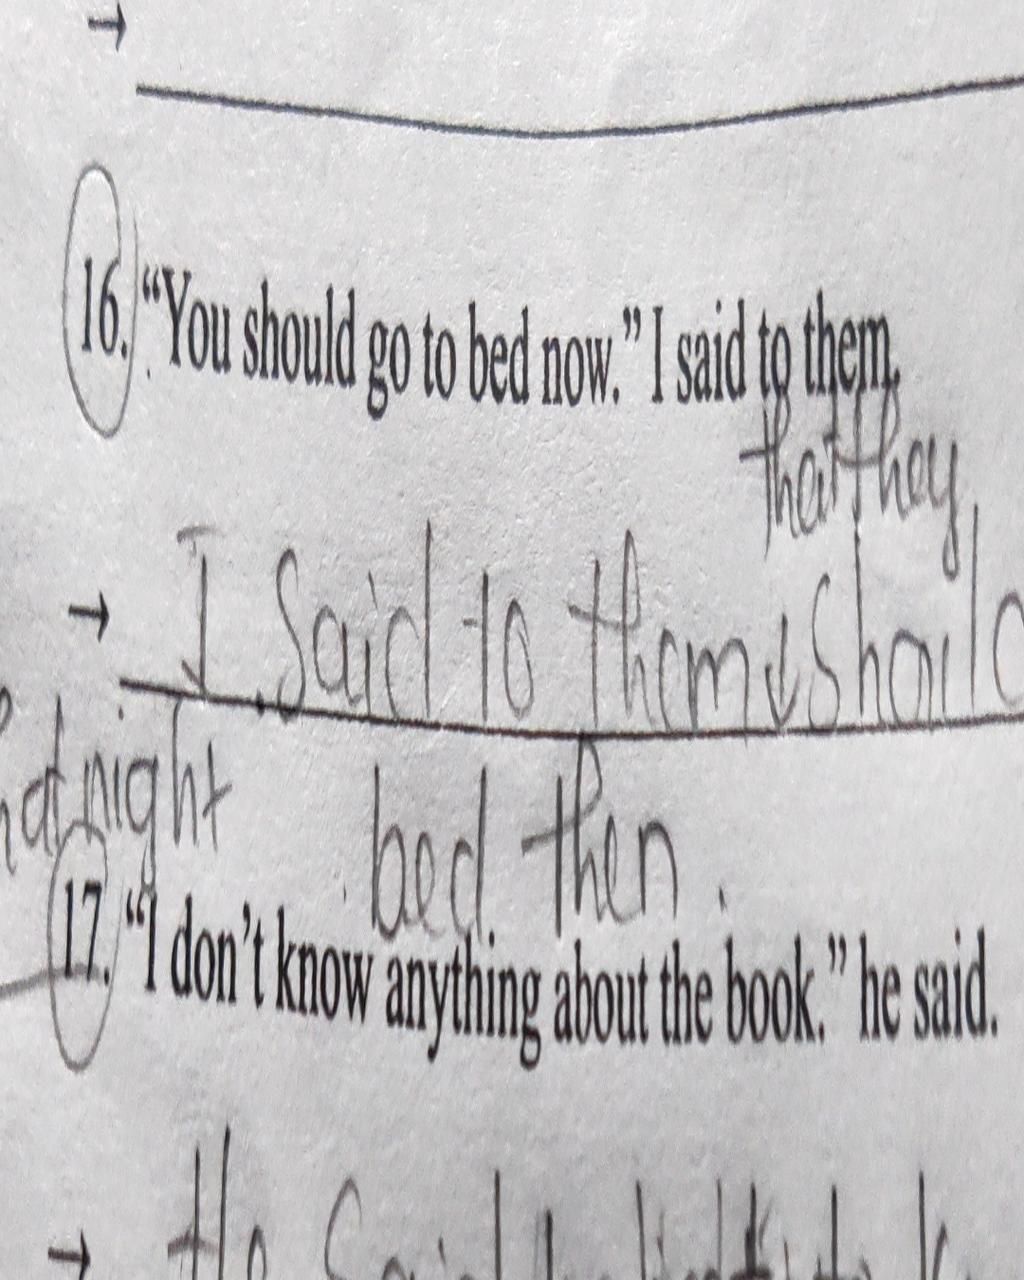 →
16. “You should go to bed now.” I said to them.
that they
→ I said to them↓should
night bed then.
17. “I don’t know anything about the book.” he said.
→ He said